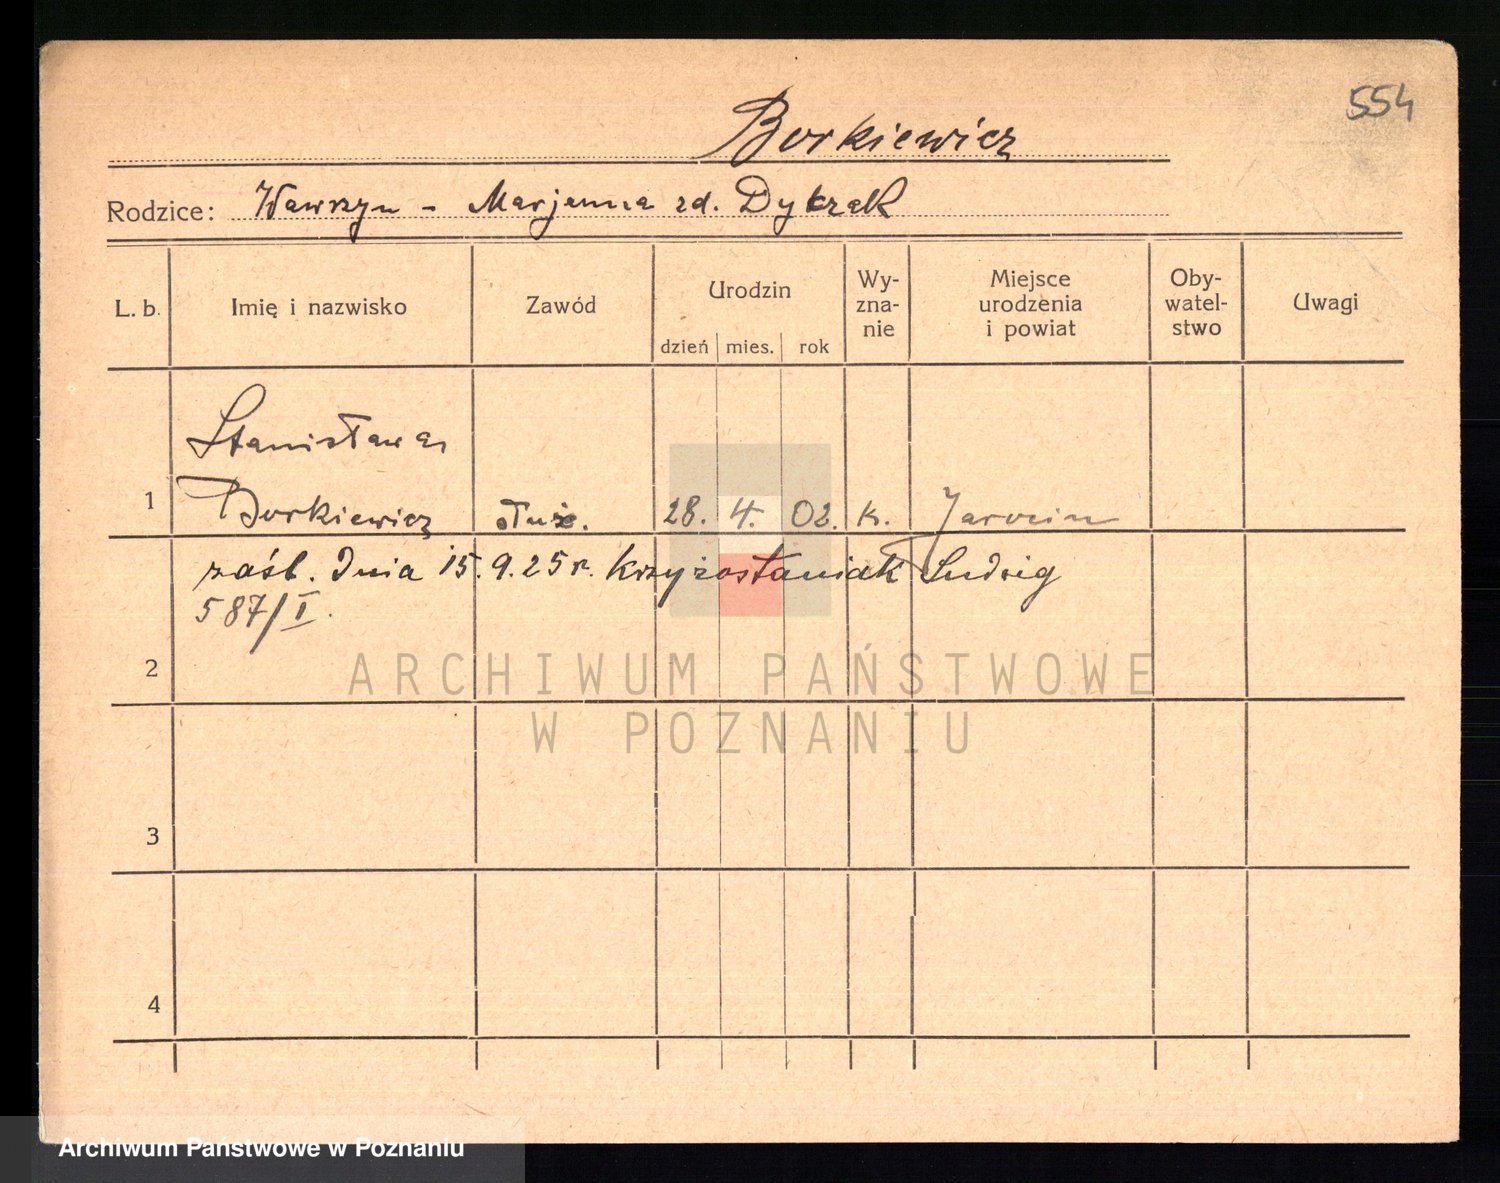 554
Borkiewicz
Rodzice: Wawrzyn - Marjanna zd. Dykzak
L. b. Imię i nazwisko Zawód Urodzin dzień mies. rok Wy-zna-nie Miejsce urodzenia i powiat Oby-watel-stwo Uwagi
Stanisława
1 Borkiewicz służ. 28. 4. 02. k. Jarocin
zaśl. Dnia 15.9.25 r. Krzyżostaniak Ludwig
587/I.
2
ARCHIWUM PAŃSTWOWE
W POZNANIU
3
4
Archiwum Państwowe w Poznaniu